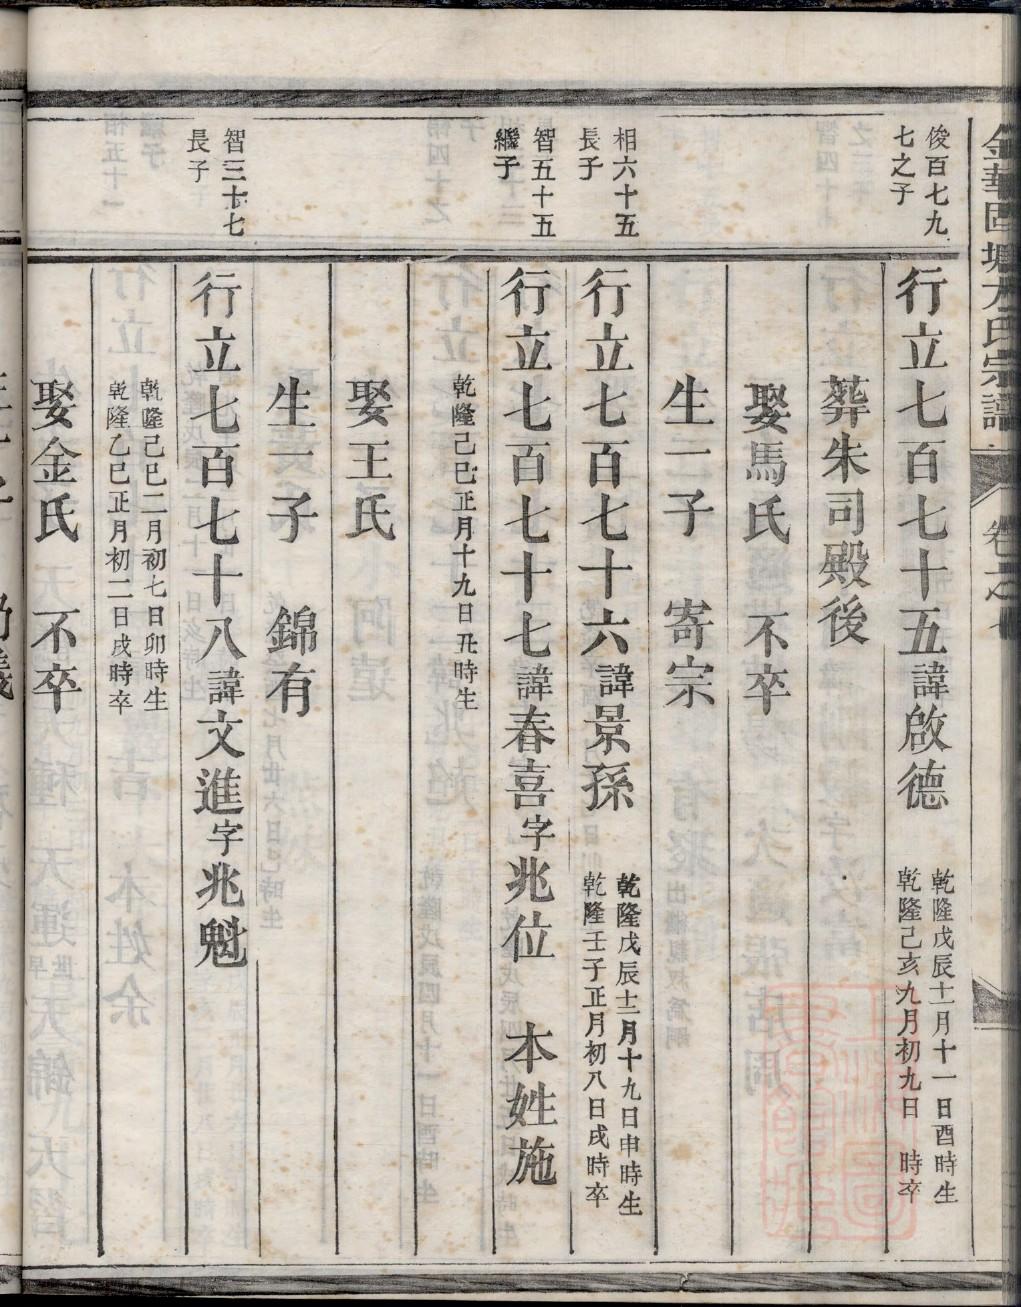 俊百七九
七之子
行立七百七十五諱啟德
乾隆戊辰十二月十一日酉時生
乾隆己亥九月初九日 時卒
葬朱司殿後
娶馬氏 不卒
生二子 寄宗
相六十五
長子
行立七百七十六諱景孫
乾隆戊辰十二月十九日申時生
乾隆壬子正月初八日戌時卒
智五十五
繼子
行立七百七十七諱春喜字兆位 本姓施
乾隆己巳正月十九日丑時生
娶王氏
生一子 錦有
智三十七
長子
行立七百七十八諱文進字兆魁
乾隆己巳二月初七日卯時生
乾隆乙巳正月初二日戌時卒
娶金氏 不卒